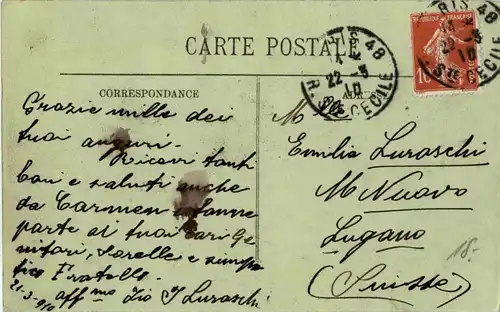 CARTE POSTALE
CORRESPONDANCE
Grazie mille dei
tuoi auguri.
Ricevi tanti
baci e saluti anche
da Carmen e fanne
parte ai tuoi cari Ge
nitori, Sorelle e simpa
tico Fratello.
aff mo Zio J Luraschi
21-3-910
REPUBLIQUE FRANÇAISE
10
PARIS 48
22 -3
10
R. STE CECILE
Mlle
Emilia Luraschi
M Nuovo
Lugano
(Suisse)
15.-